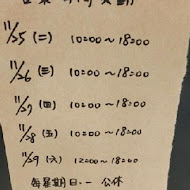 11/25 (二) 10:00 ~ 18:00
11/26 (三) 10:00 ~ 18:00
11/27 (四) 10:00 ~ 18:00
11/28 (五) 10:00 ~ 18:00
11/29 (六) 12:00 ~ 18:00
每星期日.一 公休